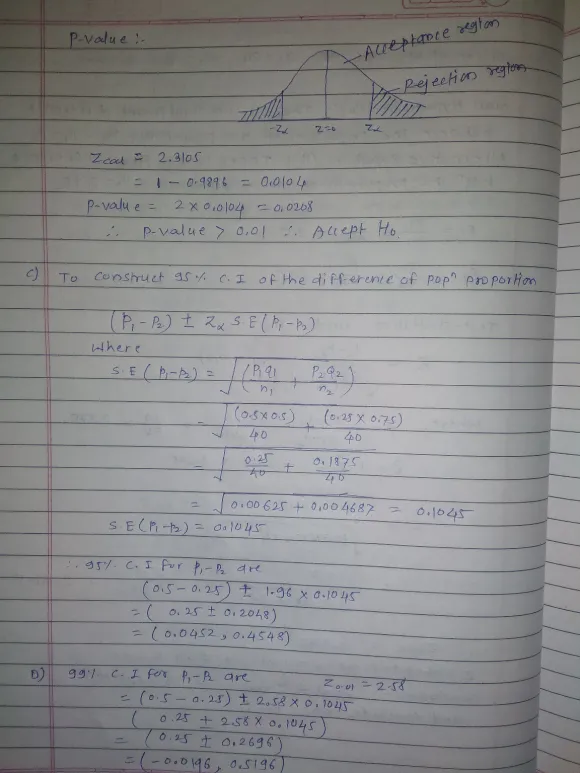 P-value :-
Acceptance region
Rejection region
-Zα Z=0 Zα
Zcal = 2.3105
= 1 - 0.9896 = 0.0104
P-value = 2 × 0.0104 = 0.0208
∴ P-value > 0.01 ∴ Accept H₀
C) To construct 95% C.I of the difference of popⁿ proportion
(P₁-P₂) ± Zα S E (P₁-P₂)
where
S.E (P₁-P₂) = √(P₁q₁/n₁ + P₂q₂/n₂)
= √((0.5×0.5)/40 + (0.25×0.75)/40)
= √(0.25/40 + 0.1875/40)
= √(0.00625 + 0.004687) = 0.1045
S E (P₁-P₂) = 0.1045
∴ 95% C.I for P₁-P₂ are
(0.5-0.25) ± 1.96 × 0.1045
= (0.25 ± 0.2048)
= (0.0452, 0.4548)
D) 99% C.I for P₁-P₂ are Z0.01 = 2.58
= (0.5 - 0.25) ± 2.58 × 0.1045
(0.25 ± 2.58 × 0.1045)
= (0.25 ± 0.2696)
= (-0.0196, 0.5196)